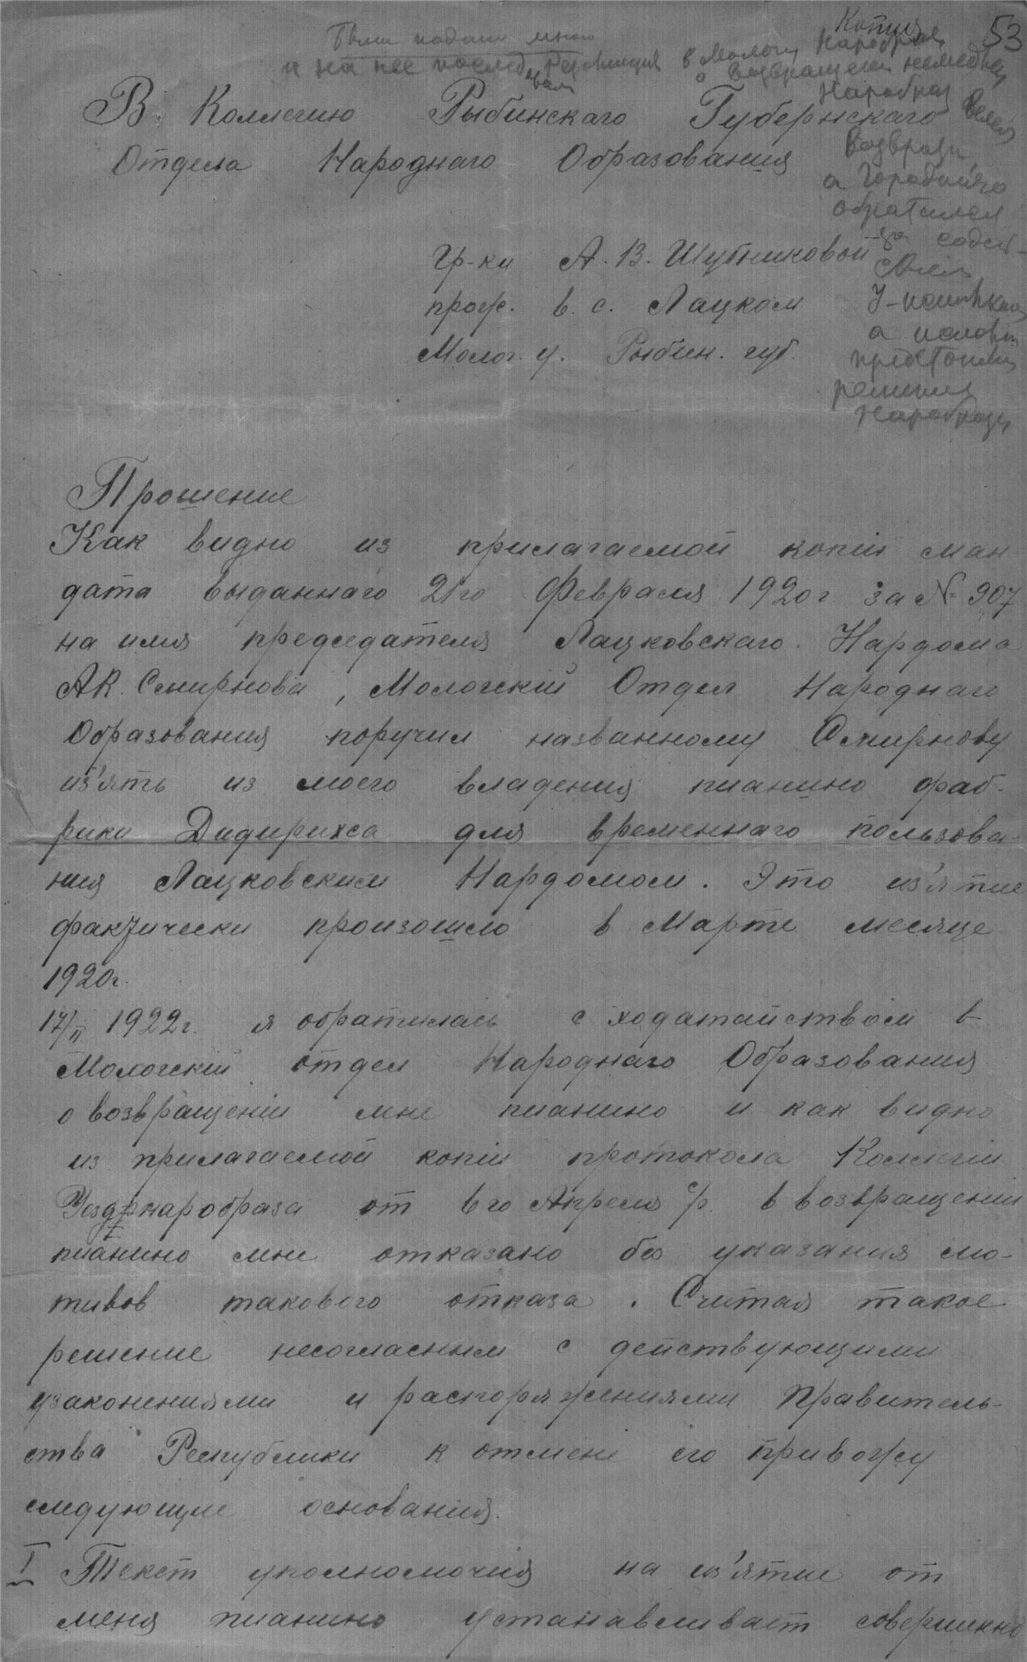 Копия
53
Была подана мною
и на нее последовала Резолюция в Мологу Наробраз
о возвращении немедлен
Наробраз
возврати
а
обратился
за содей-
ствием
У-исполком
а исполком
решения
Наробраза
В Коллегию Рыбинскаго Губернскаго
Отдела Народнаго Образования
Гр-ки А. В. Шубниковой
прож. в. с. Лацком
Молог. у. Рыбин. губ.
Прошение
Как видно из прилагаемой копіи ман-
дата выданнаго 21го Февраля 1920г за № 907
на имя председателя Лацковскаго Нардома
А К. Смирнова, Мологскій Отдел Народнаго
Образования поручил названному Смирнову
из'ять из моего владения пианино фаб-
рики Дидирихса для временнаго пользова-
ния Лацковским Нардомом. Это из'ятие
фактически произошло в Марте месяце
1920г.
17/II 1922г. я обратилась с ходатайством в
Мологскій отдел Народнаго Образования
о возвращеніи мне пианино и как видно
из прилагаемой копіи протокола Коллегіи
Уезднаробраза от 6го Апреля с/г. в возвращеніи
пианино мне отказано без указания мо-
тивов такового отказа. Считая такое
решение несогласным с действующими
узаконениями и распоряжениями Правитель-
ства Республики к отмене его привожу
следующие основания.
I Текст уполномочия на из'ятие от
меня пианино устанавливает совершенно